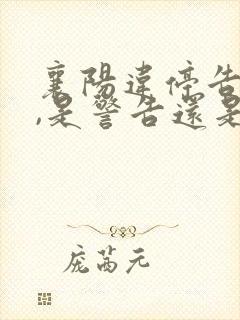 襄陽違停告
,是警告還是
庞茜元